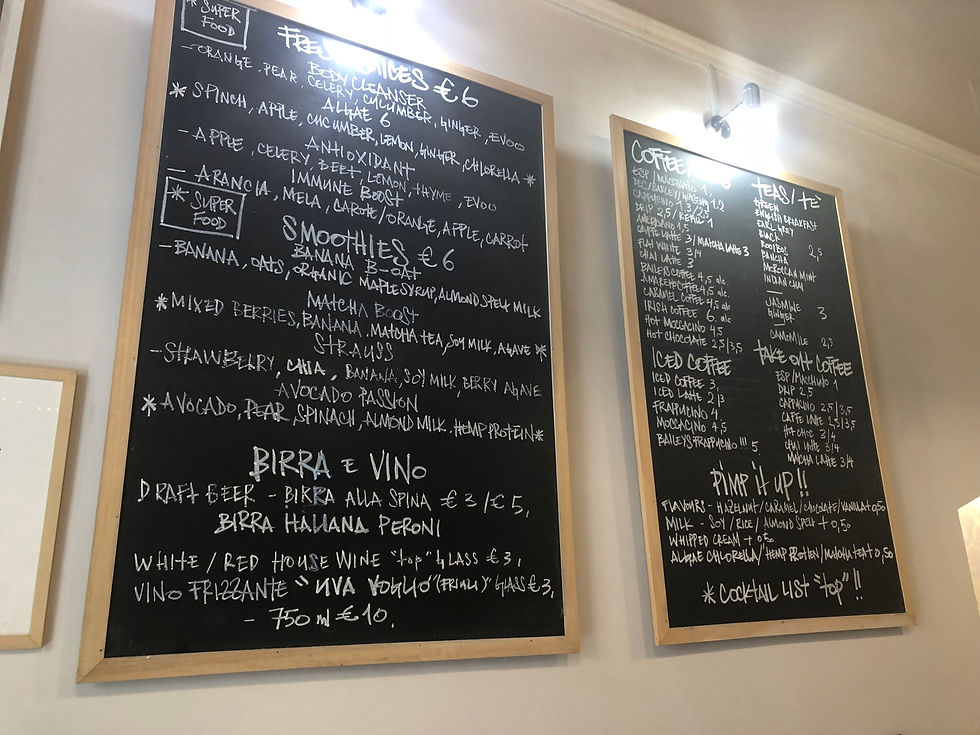 * SUPER
FOOD
FRESH JUICES € 6
BODY CLEANSER
- ORANGE, PEAR, CELERY, CUCUMBER, GINGER, EVOO
ALGAE 6
* SPINCH, APPLE, CUCUMBER, LEMON, GINGER, CHLORELLA *
ANTIOXIDANT
- APPLE, CELERY, BEET, LEMON, THYME, EVOO
IMMUNE BOOST
- ARANCIA, MELA, CAROTE/ORANGE, APPLE, CARROT
* SUPER
FOOD
SMOOTHIES € 6
BANANA B-OAT
- BANANA, OATS, ORGANIC MAPLE SYRUP, ALMOND SPELT MILK
MATCHA BOOST
* MIXED BERRIES, BANANA, MATCHA TEA, SOY MILK, AGAVE *
STRAUSS
- STRAWBELRY, CHIA, BANANA, SOY MILK, BERRY AGAVE
AVOCADO PASSION
* AVOCADO, PEAR, SPINACH, ALMOND MILK, HEMP PROTEIN *
BIRRA E VINO
DRAFT BEER - BIRRA ALLA SPINA € 3 / € 5,
BIRRA ITALIANA PERONI
WHITE / RED HOUSE WINE "top" GLASS € 3,
VINO FRIZZANTE "UVA VOGLIO" (FRIULI) GLASS € 3,
- 750 ml € 10,
COFFEE
ESP / MACCHIATO 1,
DEC/BARLEY/GINSENG 1.2
CAPPUCCINO 1.3/2,5
DRIP 2,5 / REFILL 1
AMERICANO 1,5
CAFFE LATTE 3 / MATCHA LATTE 3
FLAT WHITE 3/4
CHAI LATTE 3
BAILEYS COFFEE 4,5 alc.
AMARETTO COFFEE 4,5 alc.
CARAMEL COFFEE 4,5 alc.
IRISH COFFEE 6. alc
HOT MOCCACINO 4,5
HOT CHOCOLATE 2,5/3,5
ICED COFFEE
ICED COFFEE 3,
ICED LATTE 2/3
FRAPPUCINO 4
MOCCACINO 4,5
BAILEYS FRAPPUCINO !!! 5.
TEAS / TE'
GREEN
ENGLISH BREAKFAST
EARL GREY
BLACK
ROOIBOS 2,5
BANCHA
MOROCCAN MINT
INDIAN CHAI
JASMINE
GINGER 3
CAMOMILE 2,5
TAKE OUT COFFEE
ESP/MACCHIATO 1
DRIP 2,5
CAPPUCINO 2,5/3,5
CAFFE LATTE 2,5/3,5
HOT CHOC 3/4
CHAI LATTE 3/4
MATCHA LATTE 3/4
PIMP IT UP !!
FLAVOURS - HAZELNUT/CARAMEL/CHOCOLATE/VANILLA + 0,50
MILK - SOY / RICE / ALMOND SPELT + 0,50
WHIPPED CREAM + 0,50
ALGAE CHLORELLA/HEMP PROTEIN/MATCHA TEA + 0,50
* COCKTAIL LIST "top" !!